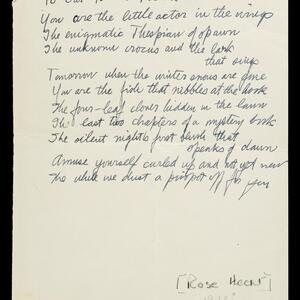 You are the little actor in the wings
The enigmatic Thespian of
The unknown crocus and the lark
that sings
Tomorrow when the winter snows are gone
You are the fish that nibbles at the hook
The four-leaf clover hidden in the lawn
The last two chapters of a mystery book
The silent night's first blush that
speaks of dawn
Amuse yourself curled up and not yet new
The while we dust a pinpot off for you
[Rose Hecht]